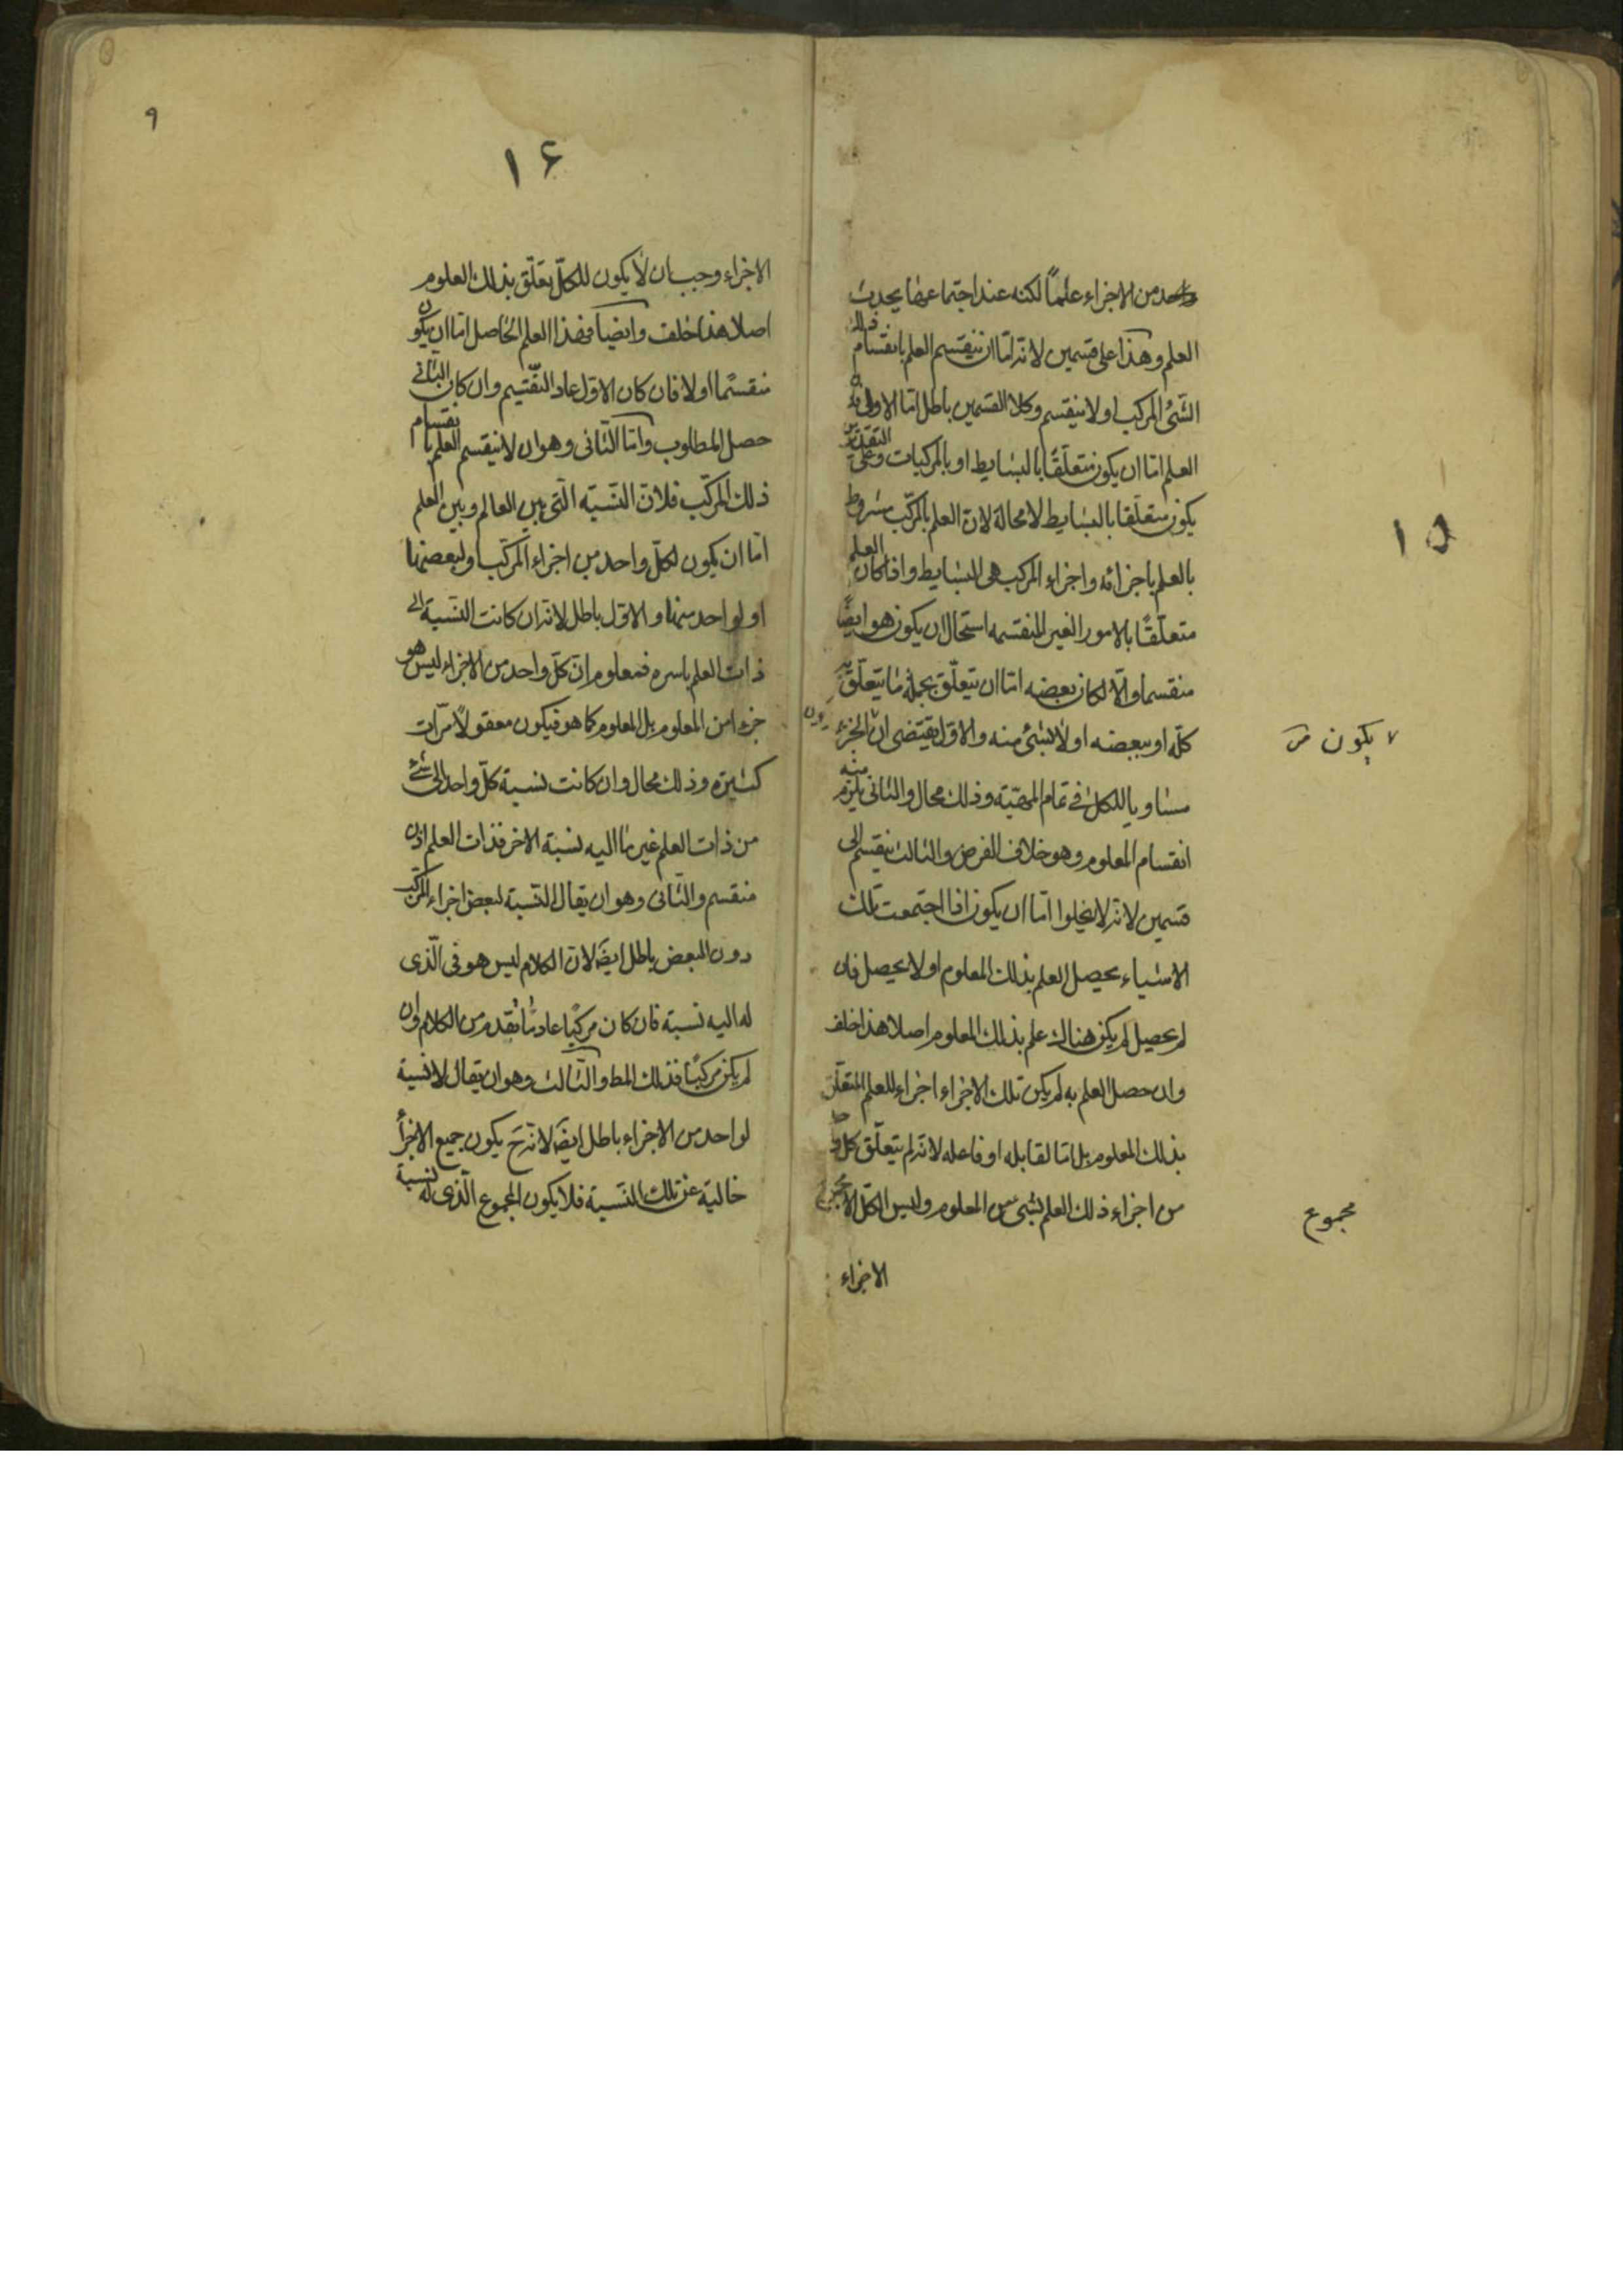 واحد من الاجزاء علماً لكنه عند اجتماعها يحدث
العلم وهذا على قسمين لانه اما ان ينقسم العلم بانقسام ذلك
الشئ المركب او لا ينقسم وكلا القسمين باطل اما الاول فلان
العلم اما ان يكون متعلقًا بالبسايط او بالمركبات وعلى التقديرين
يكون متعلقا بالبسايط لا محالة لان العلم بالمركّب مشروط
بالعلم باجزائه واجزاء المركب هى البسايط واذا كان العلم
متعلّقًا بالامور الغير المنقسمه استحال ان يكون هو ايضًا
منقسما والّا لكان بعضه اما ان يتعلّق بجملة ما يتعلّق به
كلّه او ببعضه او لا بشئ منه والاوّل يقتضى ان الجزء
٧ يكون
مساويا للكل فى تمام المهيّة وذلك محال والثانى يلزم منه
انقسام المعلوم وهو خلاف الفرض والثالث ينقسم الى
قسمين لانه لا يخلوا اما ان يكون اذا اجتمعت تلك
الاشياء يحصل العلم بذلك المعلوم او لا يحصل فان
لم يحصل لم يكن هناك علم بذلك المعلوم اصلا هذا خلف
وان حصل العلم به لم يكن تلك الاجزاء اجزاء للعلم المتعلّق
بذلك المعلوم بل اما لقابله او فاعله لانه لم يتعلّق كل واحد
من اجزاء ذلك العلم بشئ من المعلوم وليس الكلّ الا
مجموع
الاجزاء
١٥
٩
١۶
الاجزاء وجب ان لا يكون للكلّ تعلّق بذلك المعلوم
اصلا هذا خلف وايضاً فهذا العلم الحاصل اما ان يكون
منقسمًا اولا فان كان الاوّل عاد التّقسيم وان كان الثانى
حصل المطلوب وامّا الثّانى وهو ان لا ينقسم العلم بانقسام
ذلك المركّب فلانّ النّسبة الّتى بين العالم وبين العلم
امّا ان يكون لكلّ واحد من اجزاء المركّب او لبعضها
او لواحد منها والاوّل باطل لانه ان كانت النّسبة الى
ذات العلم باسره فمعلوم انّ كلّ واحد من الاجزاء ليس هو
جزءا من المعلوم بل المعلوم كما هو فيكون معقولاً مرّات
كثيرة وذلك محال وان كانت نسبة كلّ واحد الى شئ
من ذات العلم غير ما اليه نسبة الاخر فذات العلم اذن
منقسم والثّانى وهو ان يقال النّسبة لبعض اجزاء المركّب
دون البعض باطل ايضَ لانّ الكلام ليس هو فى الّذى
له اليه نسبة فان كان مركّبًا عاد ما تقدم من الكلام وان
لم يكن مركبًا فذلك المط والثّالث وهو ان يقال لا نسبة
لواحد من الاجزاء باطل ايضَ لانّه ح يكون جميع الاجزأ
خالية عن تلك النّسبة فلا يكون المجموع الّذى له نسبة